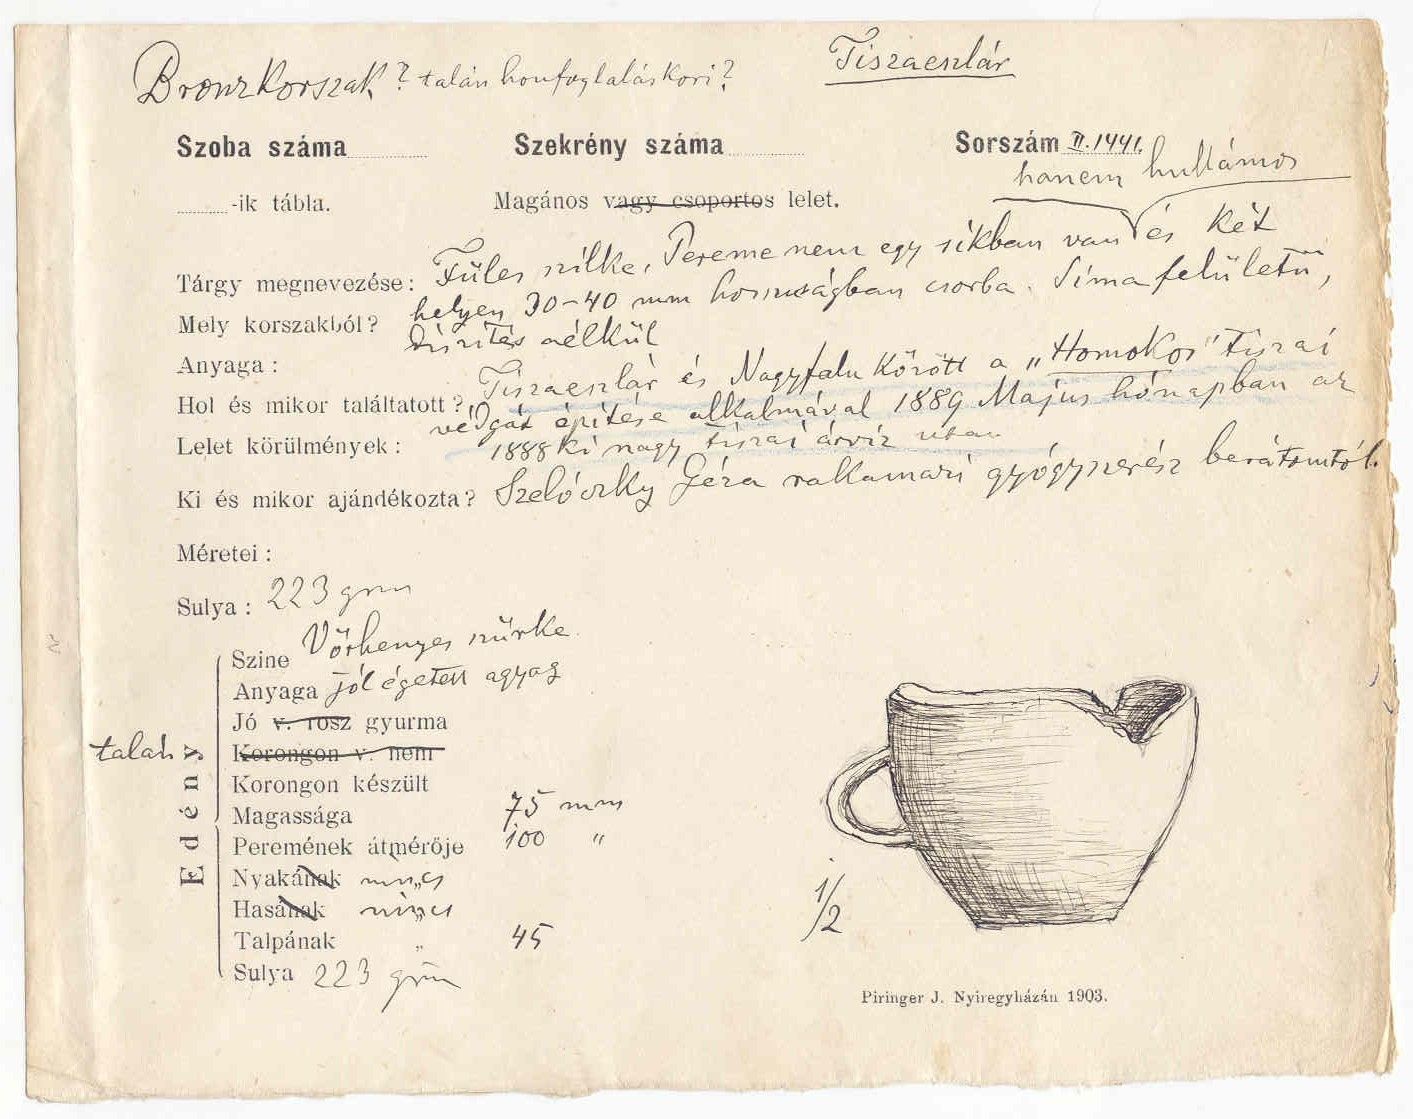 Bronzkorszak? talán honfoglaláskori?
Tiszaeszlár
Szoba száma
Szekrény száma
Sorszám II. 1441.
-ik tábla.
Magános vagy csoportos lelet.
hanem hullámos
Tárgy megnevezése: Füles szilke. Pereme nem egy síkban van és két
Mely korszakból? helyen 30-40 mm hosszuságban csorba. Síma felületü,
díszítés nélkül
Anyaga:
Hol és mikor találtatott? Tiszaeszlár és Nagyfalu között a „Homokos" tiszai
Lelet körülmények: védgát építése alkalmával 1889 Május hónapban az
1888 ki nagy tiszai árvíz után
Ki és mikor ajándékozta? Géza rakamazi gyógyszerész barátomtól.
Méretei:
Sulya: 223 grm
Edény
Szine Vörhenyes szürke
Anyaga jól égetett agyag
Jó v. rosz gyurma
talán Korongon v. nem
Korongon készült
Magassága 75 mm
Peremének átmérője 100 "
Nyakának „ nincs
Hasának „ nincs
Talpának „ 45
Sulya 223 grm
1/2
Piringer J. Nyiregyházán 1903.